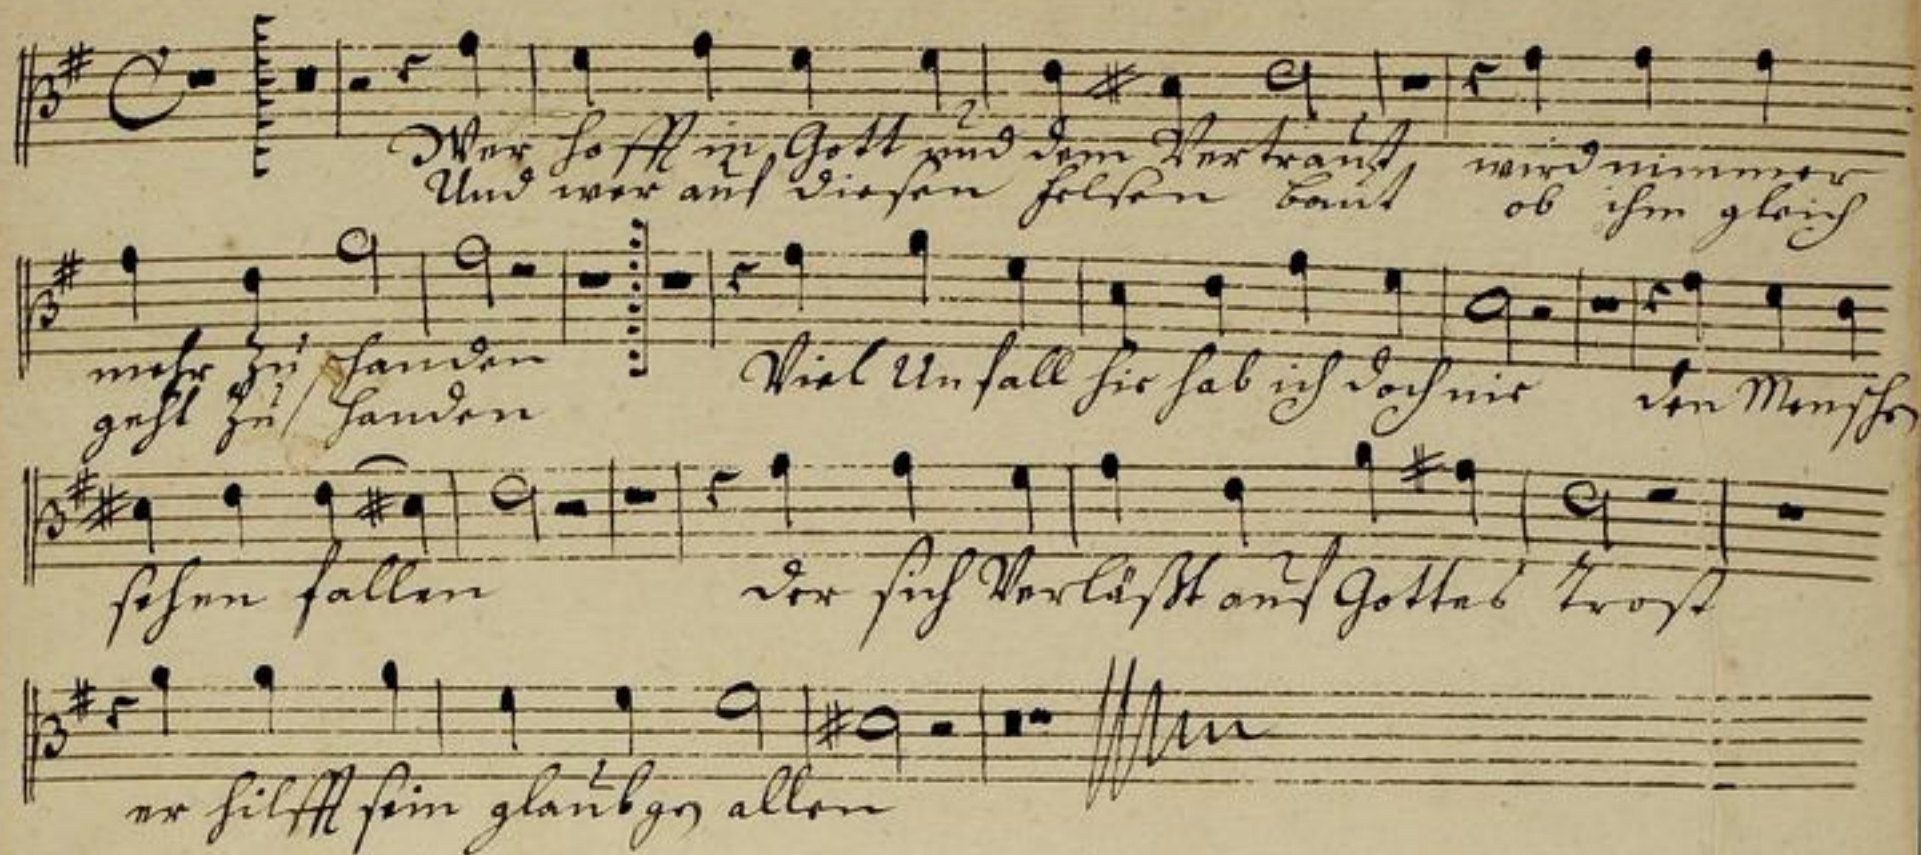 Wer hofft in Gott und dem Vertraut, wird nimmer
Und wer auf diesen felsen baut ob ihm gleich
mehr zu schanden
geht zu handen
Viel Unfall hie hab ich doch nie den Menschen
sehen fallen der sich Verläßt auf Gottes Trost
er hilfft sein glaubgen allen